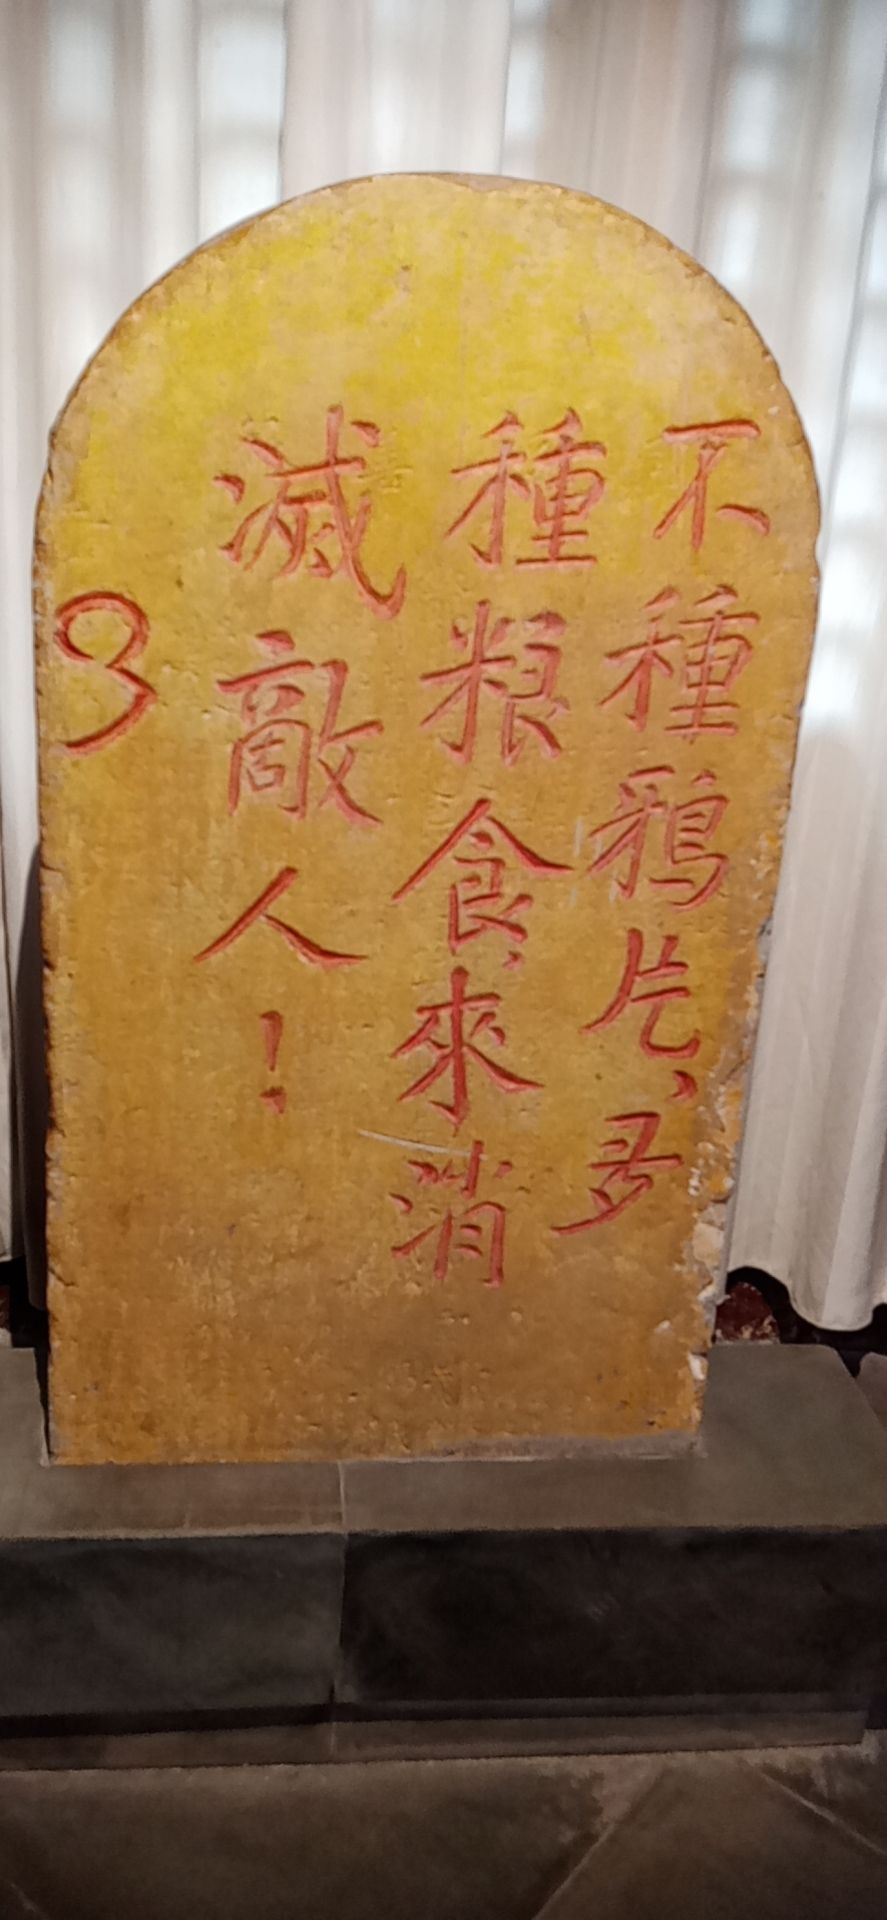 不種鴉片、多
種粮食、來消
滅敵人!
3